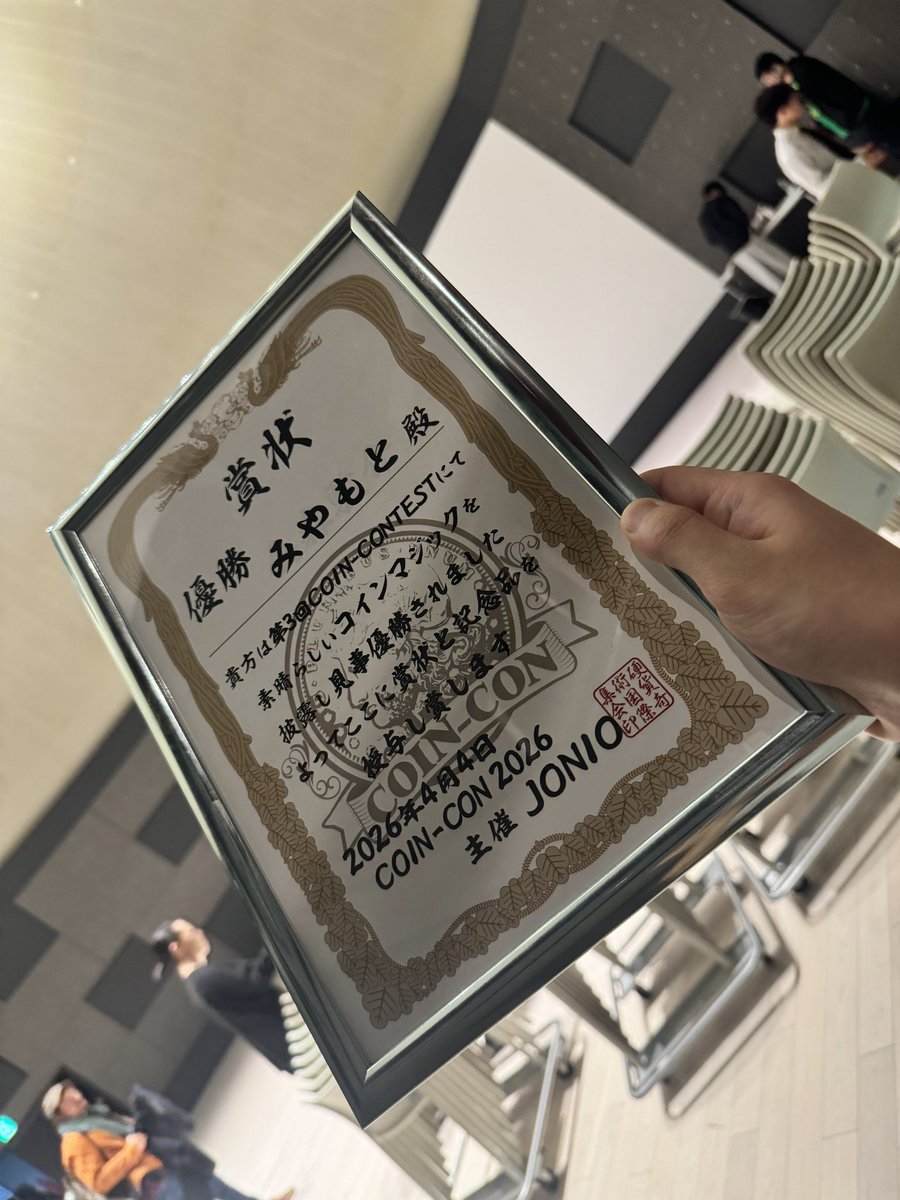 賞状
優勝 みやもと 殿
貴方は第3回COIN-CONTESTにて
素晴らしいコインマジックを
披露し見事優勝されました
よってここに賞状と記念品を
授与し賞します
2026年4月4日
COIN-CON 2026
主催 JONIO
硬貨奇
術国際
集会印
COIN-CON